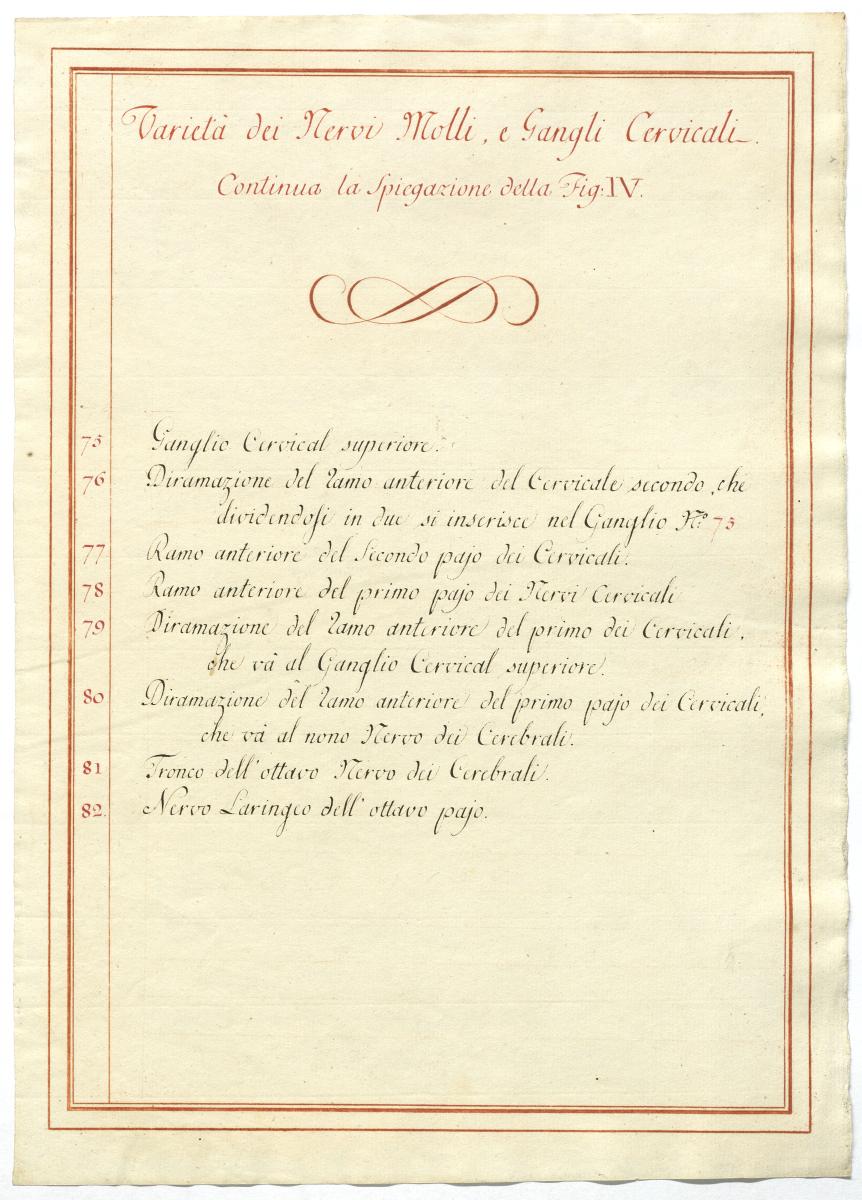 Varietà dei Nervi Molli, e Gangli Cervicali.
Continua la Spiegazione della Fig: IV.
75 Ganglio Cervical superiore.
76 Diramazione del ramo anteriore del Cervicale secondo, che
dividendosi in due si inserisce nel Ganglio N.º 75
77 Ramo anteriore del Secondo pajo dei Cervicali.
78 Ramo anteriore del primo pajo dei Nervi Cervicali
79 Diramazione del ramo anteriore del primo dei Cervicali,
che và al Ganglio Cervical superiore.
80 Diramazione del ramo anteriore del primo pajo dei Cervicali,
che và al nono Nervo dei Cerebrali.
81 Tronco dell' ottavo Nervo dei Cerebrali.
82. Nervo Laringeo dell' ottavo pajo.